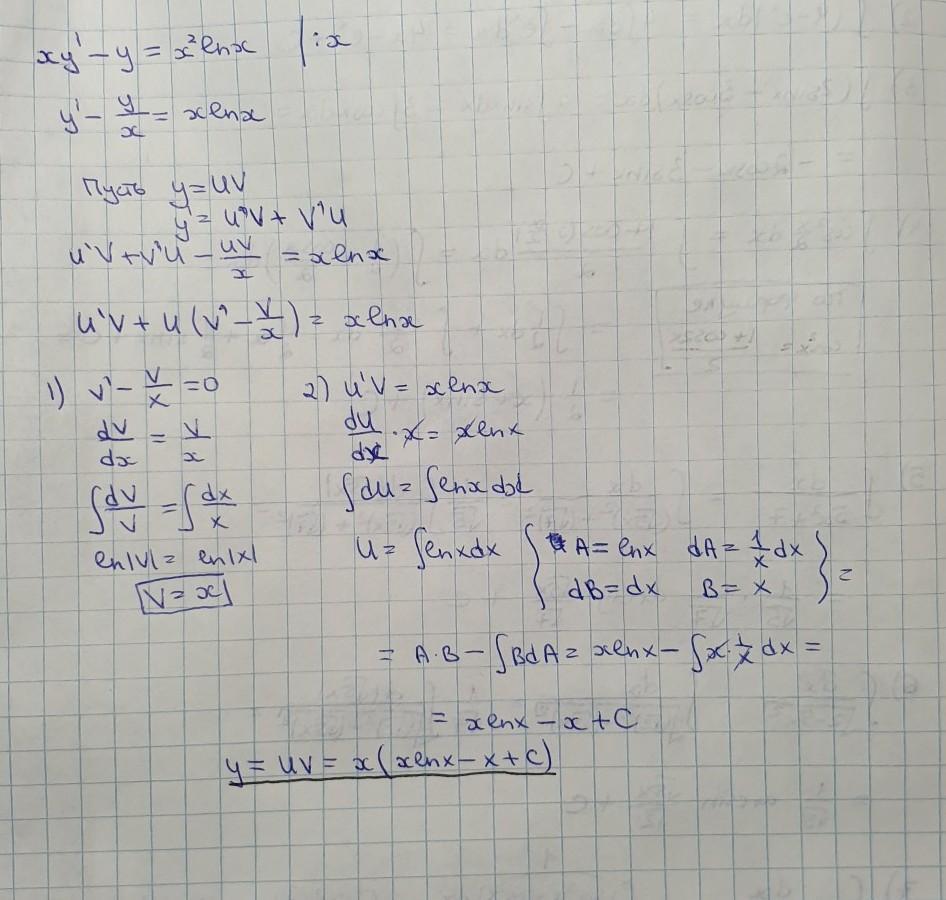 xy' - y = x² ln x | : x
y' - y/x = x ln x
Пусть y = UV
y' = U'V + V'U
U'V + V'U - UV/x = x ln x
U'V + U(V' - V/x) = x ln x
1) V' - V/x = 0
dV/dx = V/x
∫ dV/V = ∫ dx/x
ln|V| = ln|x|
V = x
2) U'V = x ln x
dU/dx · x = x ln x
∫ dU = ∫ ln x dx
U = ∫ ln x dx { A = ln x dA = 1/x dx
dB = dx B = x } =
= A·B - ∫ B dA = x ln x - ∫ x · 1/x dx =
= x ln x - x + C
y = UV = x(x ln x - x + C)